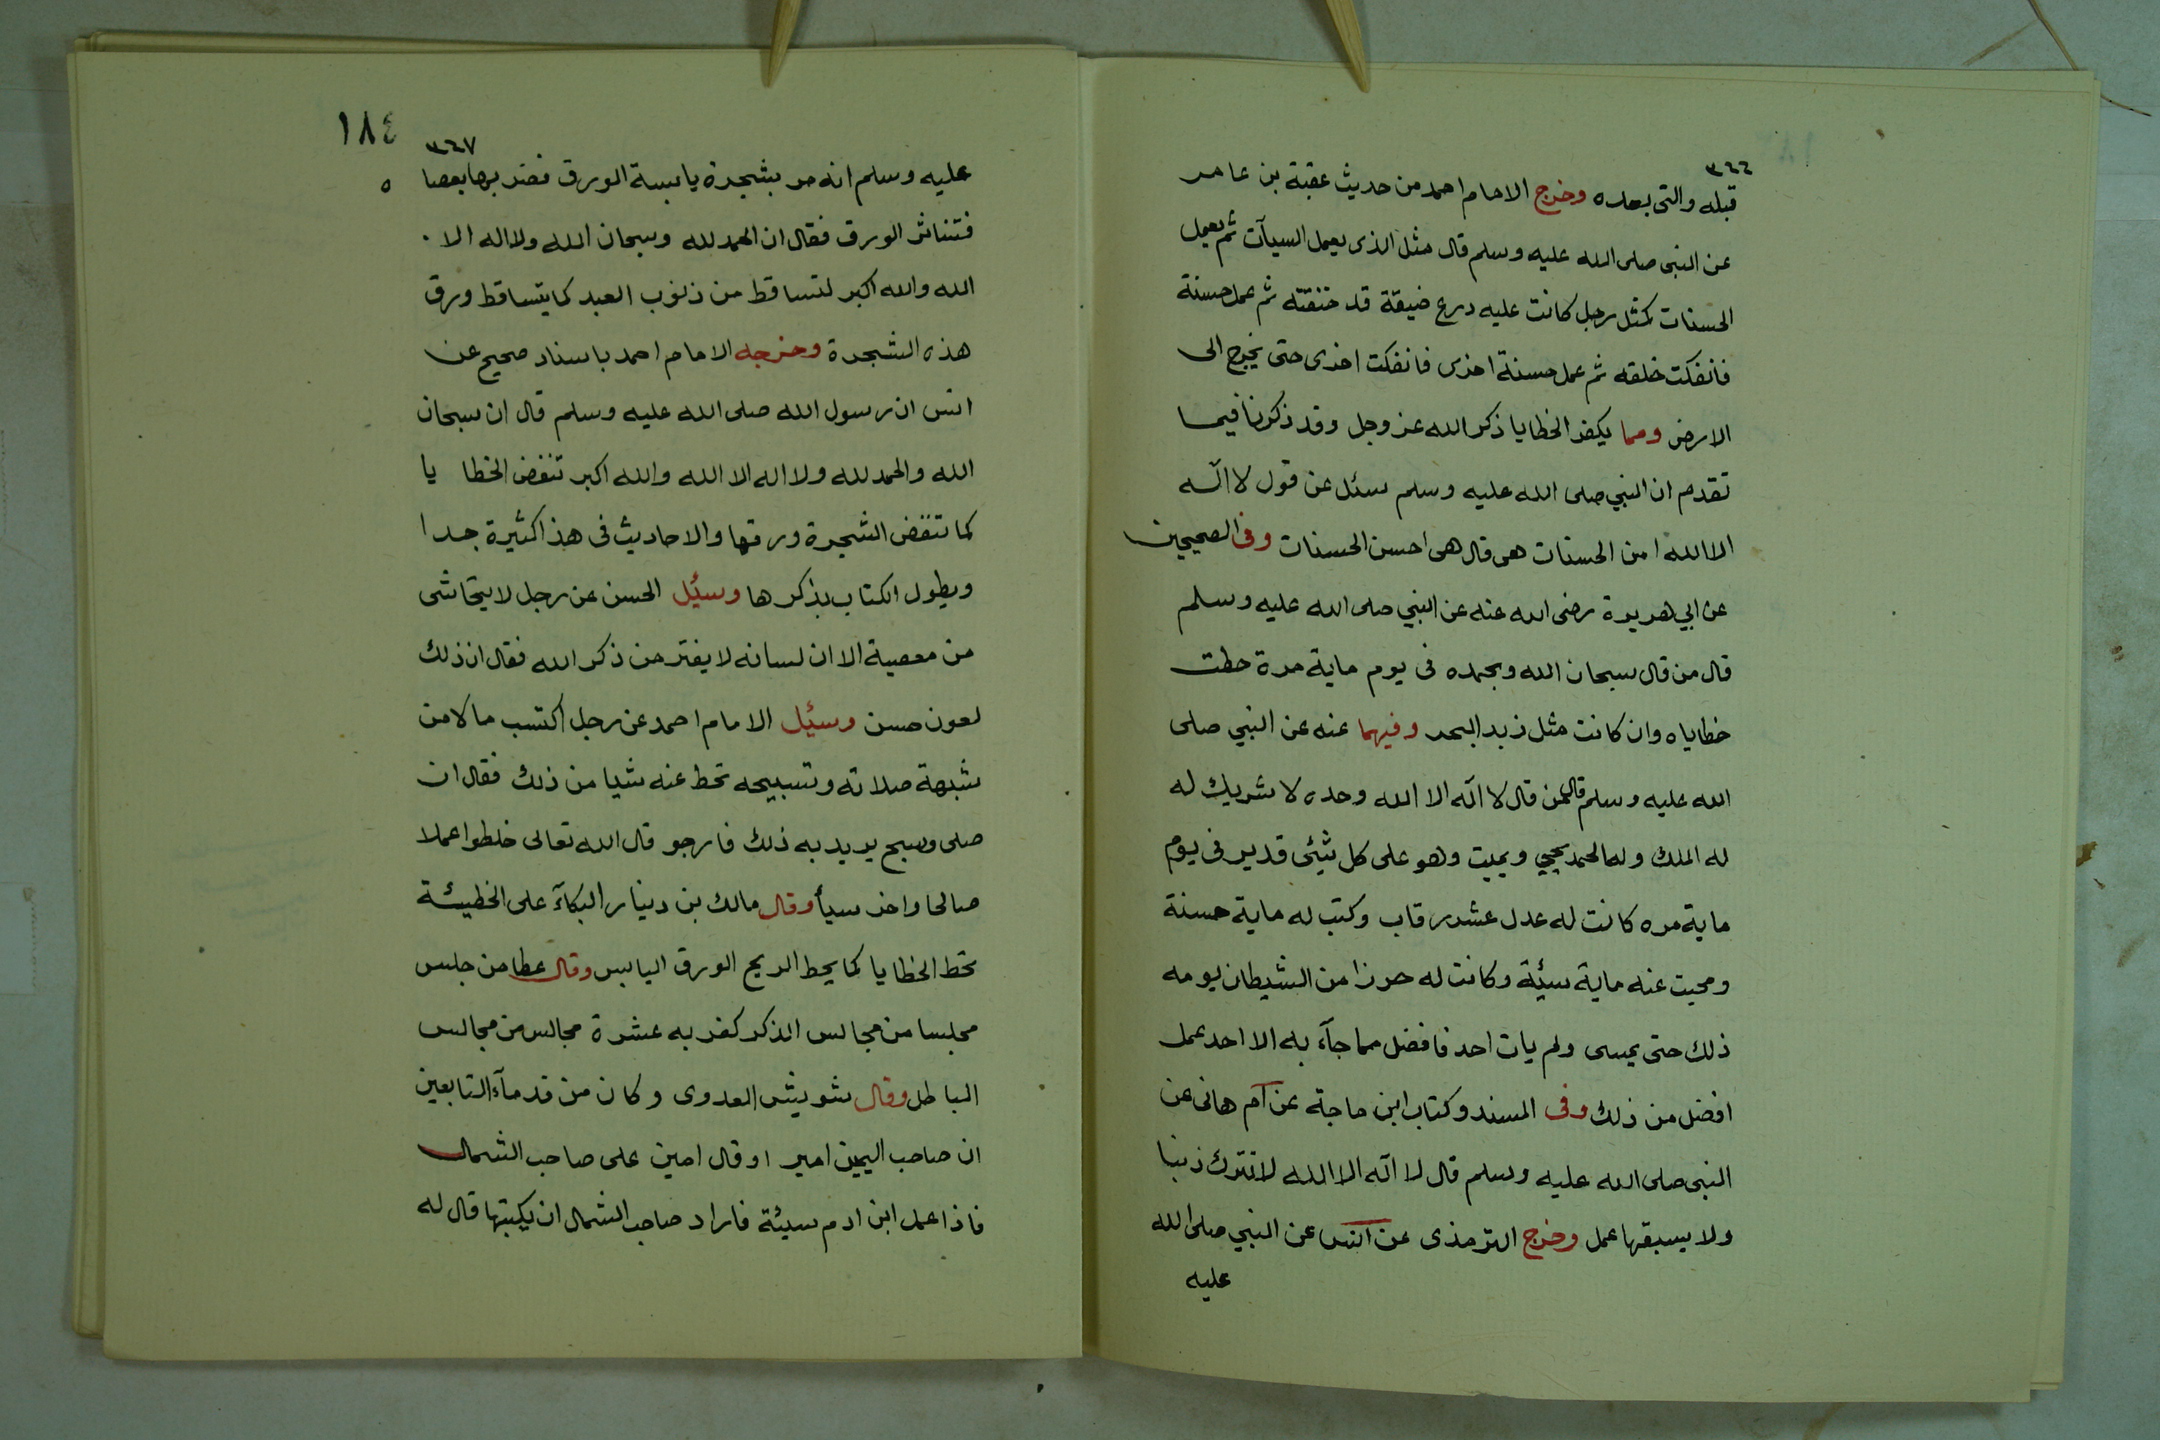 ٣٦٦
قبله والتى بعده وخرج الامام احمد من حديث عقبة بن عامر
عن النبى صلى الله عليه وسلم قال مثل الذى يعمل السيآت ثم يعمل
الحسنات كمثل رجل كانت عليه درع ضيقة قد خنقته ثم عمل حسنة
فانفكت حلقه ثم عمل حسنة اخرى فانفكت اخرى حتى يخرج الى
الارض ومما يكفر الخطايا ذكر الله عز وجل وقد ذكرنا فيما
تقدم ان النبي صلى الله عليه وسلم سئل عن قول لا اله
الا الله امن الحسنات هى قال هى احسن الحسنات وفى الصحيحين
عن ابي هريرة رضى الله عنه عن النبي صلى الله عليه وسلم
قال من قال سبحان الله وبحمده فى يوم ماية مرة حطت
خطاياه وان كانت مثل زبد البحر وفيهما عنه عن النبي صلى
الله عليه وسلم قال من قال لا اله الا الله وحده لا شريك له
له الملك وله الحمد يحيي ويميت وهو على كل شئى قدير فى يوم
ماية مره كانت له عدل عشر رقاب وكتب له ماية حسنة
ومحيت عنه ماية سيئة وكانت له حرزا من الشيطان يومه
ذلك حتى يمسى ولم يات احد فافضل مما جآء به الا احد عمل
افضل من ذلك وفى المسند وكتاب ابن ماجة عن ام هانى عن
النبى صلى الله عليه وسلم قال لا اله الا الله لا تترك ذنبا
ولا يسبقها عمل وخرج الترمذى عن انس عن النبي صلى الله
عليه
١٨٤
٣٦٧
عليه وسلم انه مر بشجرة يابسة الورق فضربها بعصا ه
فتناثر الورق فقال ان الحمد لله وسبحان الله ولا اله الا
الله والله اكبر لتساقط من ذنوب العبد كما يتساقط ورق
هذه الشجرة وخرجه الامام احمد باسناد صحيح عن
انس ان رسول الله صلى الله عليه وسلم قال ان سبحان
الله والحمد لله ولا اله الا الله والله اكبر تنفض الخطا يا
كما تنفض الشجرة ورقها والاحاديث فى هذا كثيرة جدا
ويطول الكتاب بذكرها وسئيل الحسن عن رجل لا يتحاشى
من معصية الا ان لسانه لا يفتر من ذكر الله فقال ان ذلك
لعون حسن وسئيل الامام احمد عن رجل اكتسب مالا من
شبهة صلاته وتسبيحه تحط عنه شيا من ذلك فقال ان
صلى وسبح يريد به ذلك فارجو قال الله تعالى خلطوا عملا
صالحا واخر سيأ وقال مالك بن دينار البكآء على الخطيئة
تحط الخطايا كما يحط الريح الورق اليابس وقال عطا من جلس
مجلسا من مجالس الذكر كفر به عشرة مجالس من مجالس
الباطل وقال شويش العدوى وكان من قدمآء التابعين
ان صاحب اليمين امير او قال امين على صاحب الشمال
فاذا عمل ابن ادم سيئة فاراد صاحب الشمال ان يكبتها قال له